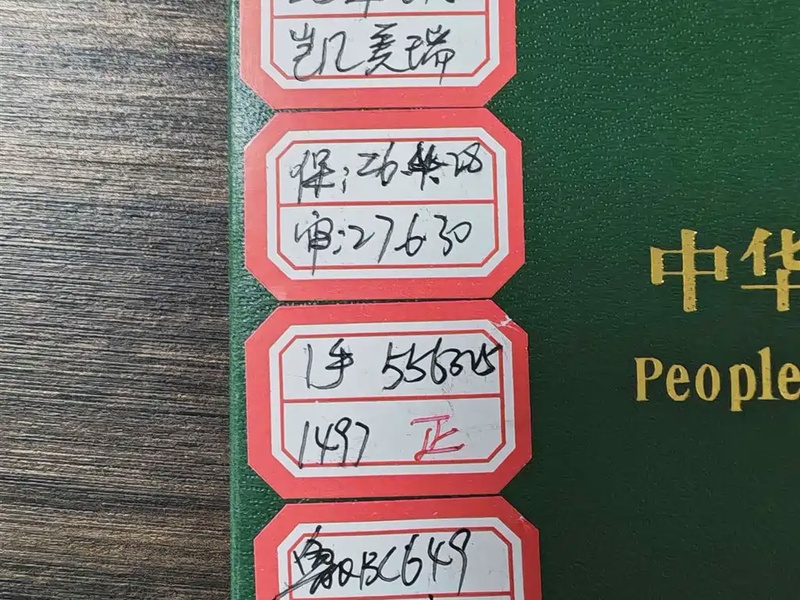 凯美瑞
保:26
审:27.6.30
1手 556025
1497 正
BC649
中华
People